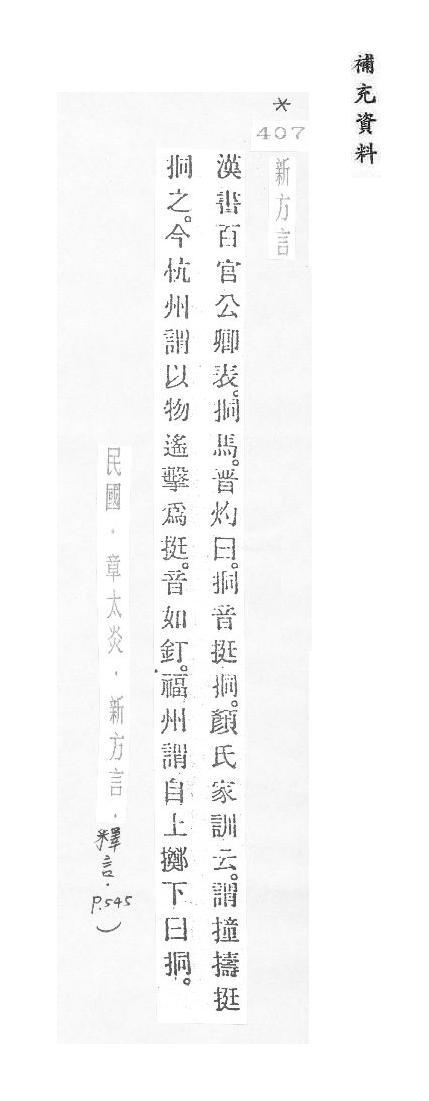 補充資料
*
407
新方言
漢書百官公卿表。挏馬。晋灼曰。挏音挺挏。顏氏家訓云。謂撞擣挺
挏之。今杭州謂以物遙擊爲挺。音如釘。福州謂自上擲下曰挏。
民國.章太炎.新方言.釋言.P.545)